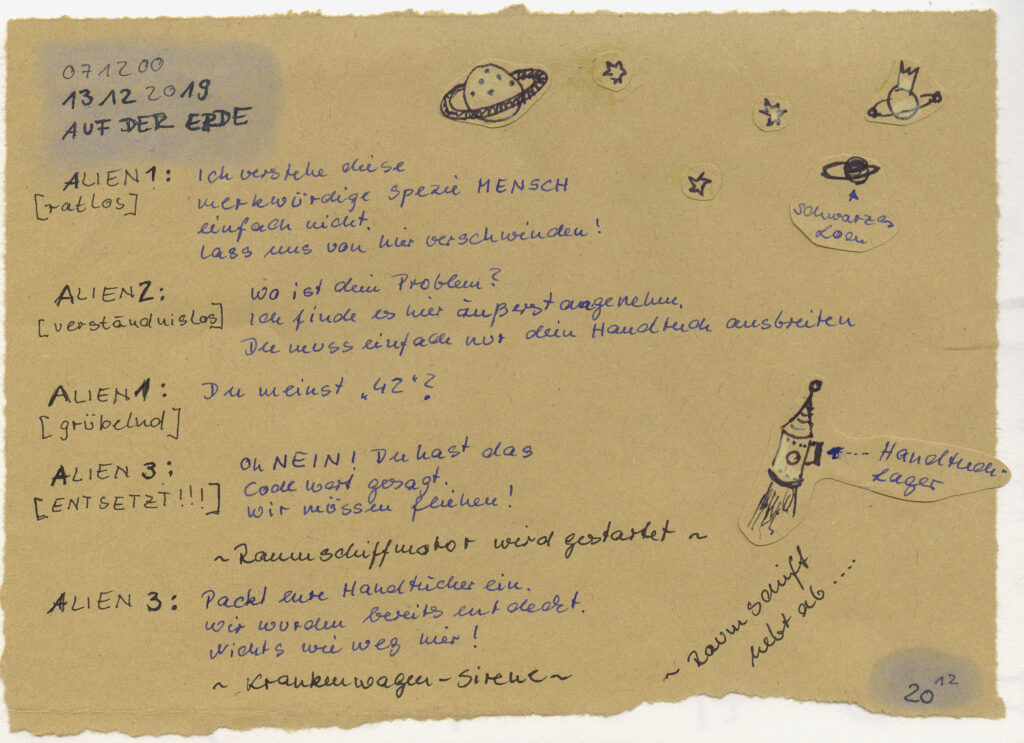 071200
13122019
AUF DER ERDE
ALIEN 1: Ich verstehe diese
[ratlos] merkwürdige Spezie MENSCH
einfach nicht.
Lass uns von hier verschwinden!
ALIEN 2: Wo ist dein Problem?
[verständnislos] Ich finde es hier äußerst angenehm.
Du muss einfach nur dein Handtuch ausbreiten
ALIEN 1: Du meinst „42"?
[grübelnd]
ALIEN 3: Oh NEIN! Du hast das
[ENTSETZT!!!] Code wort gesagt.
Wir müssen fliehen!
~ Raumschiffmotor wird gestartet ~
ALIEN 3: Packt eure Handtücher ein.
Wir wurden bereits entdeckt.
Nichts wie weg hier!
~ Krankenwagen-Sirene ~
Schwarzes
Loch
Handtuch-
Lager
~ Raumschiff
hebt ab .....
20 12